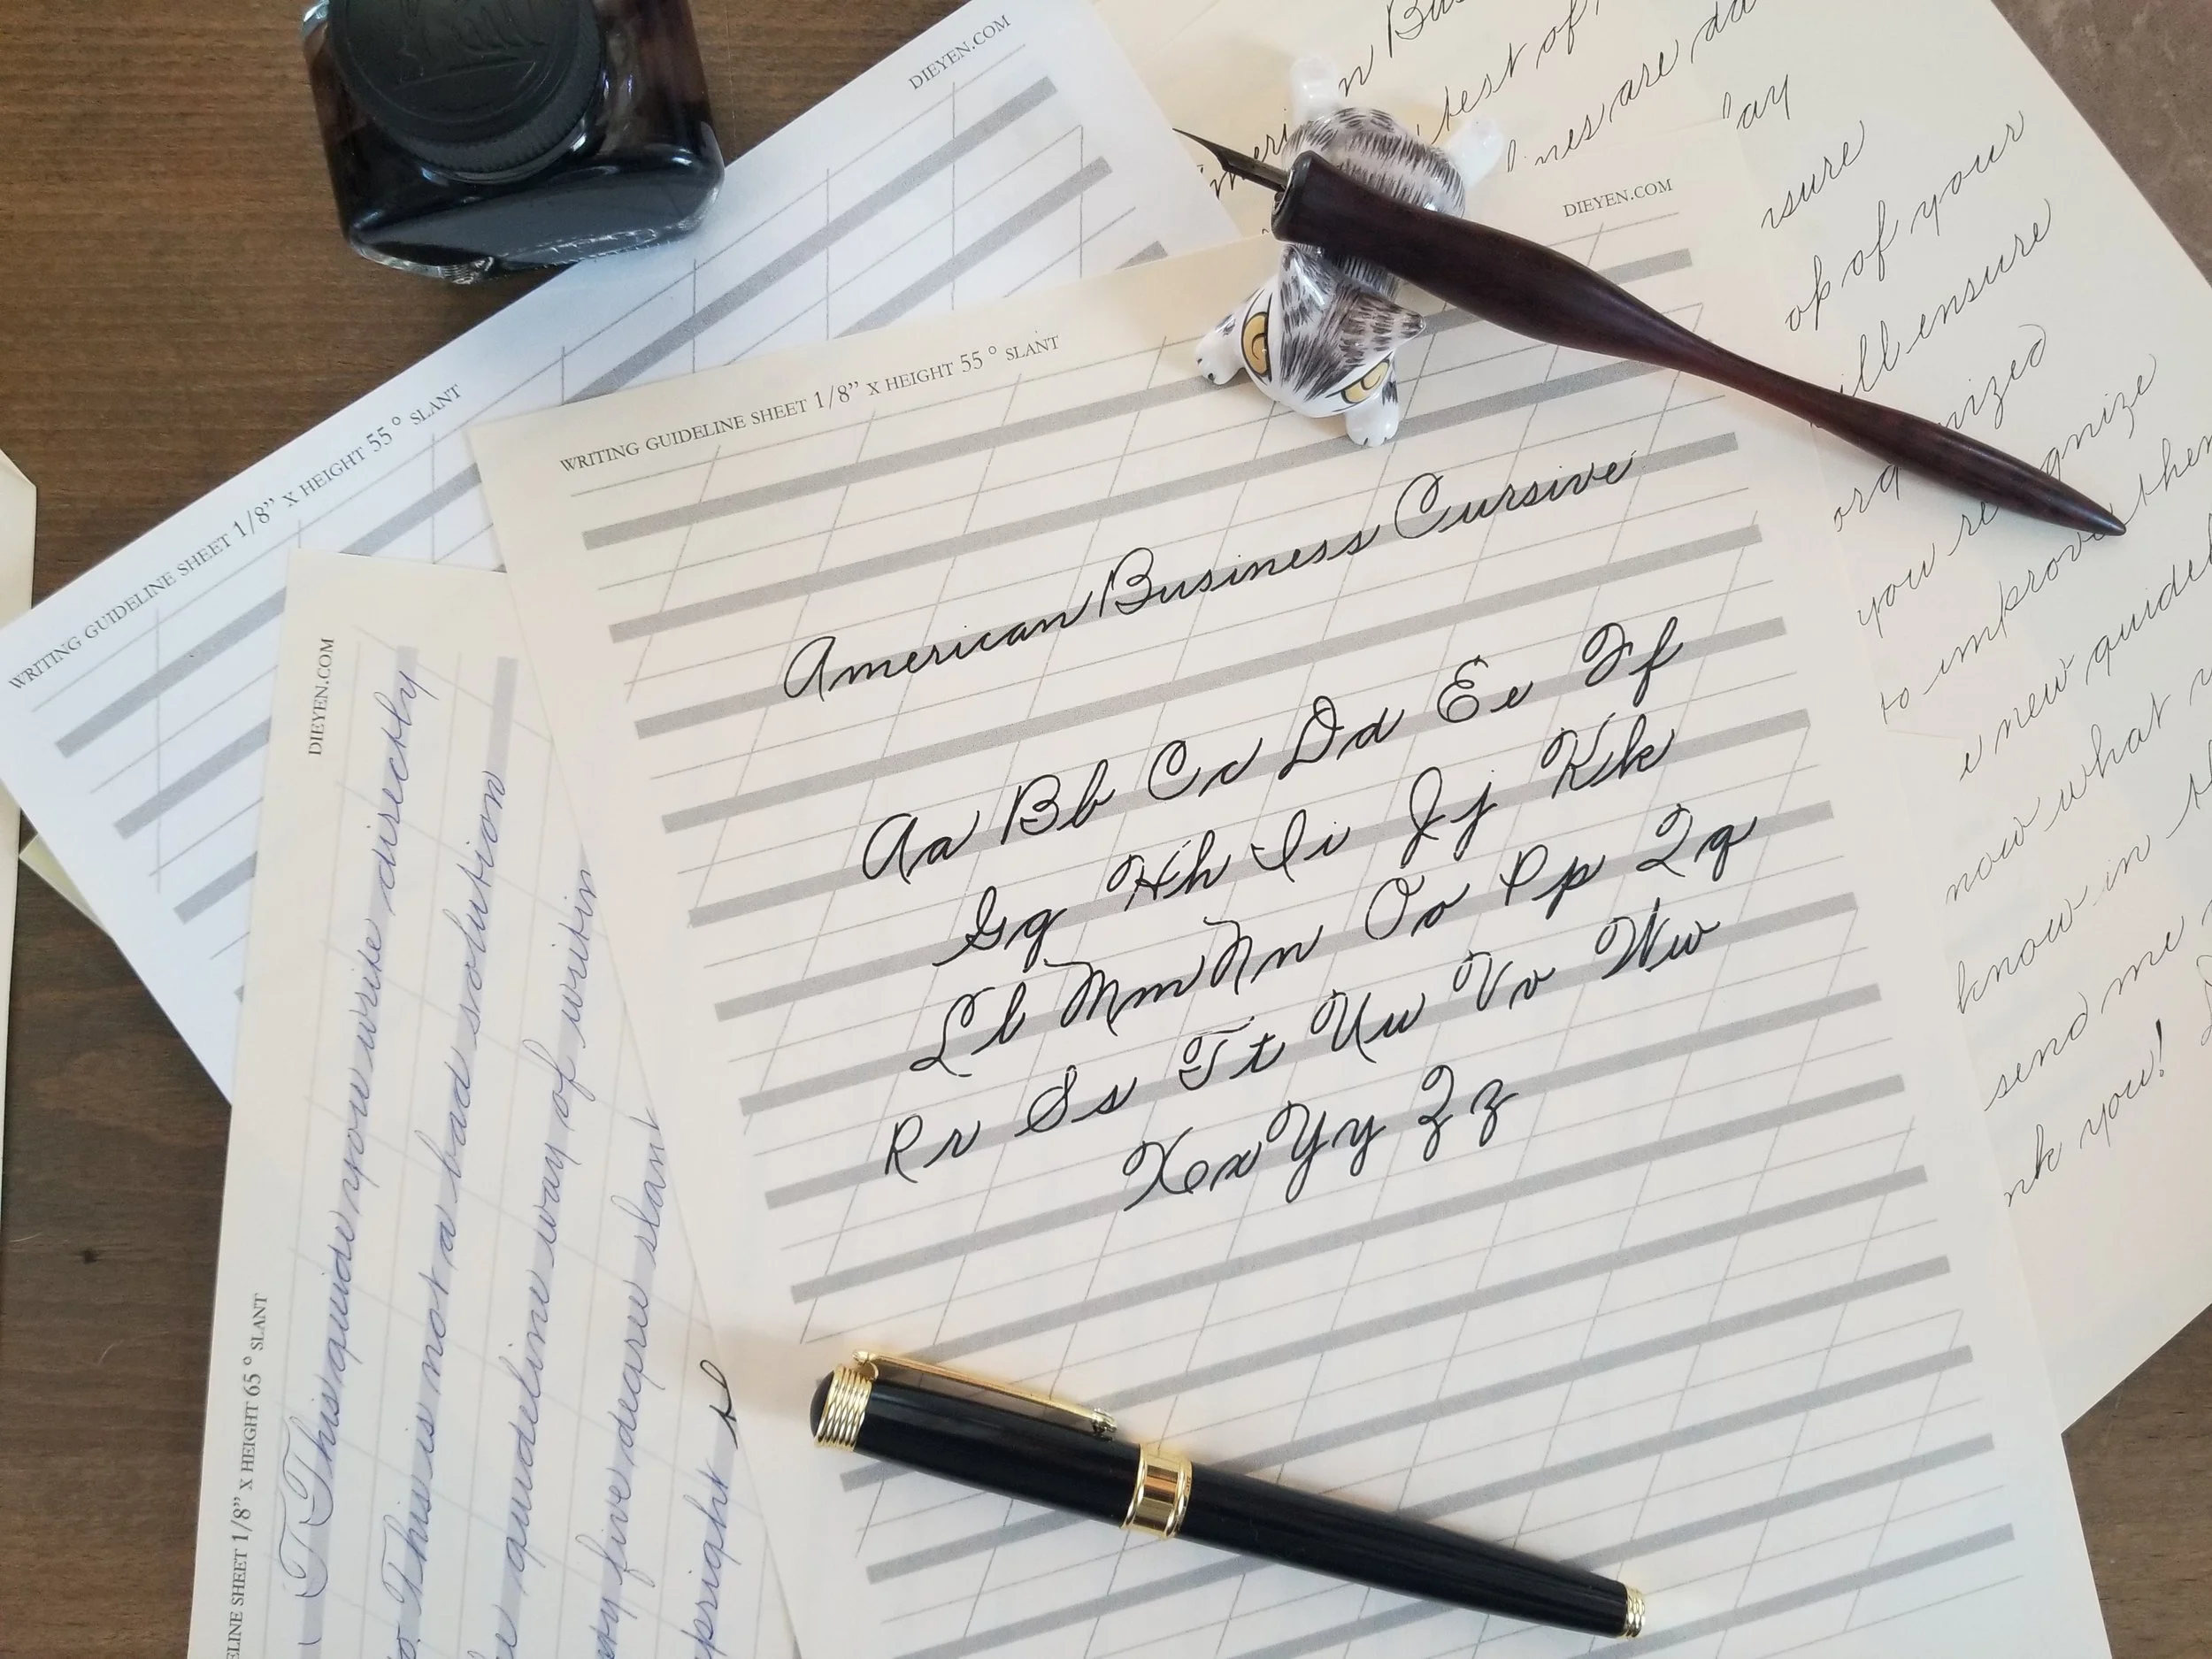 DIEYEN.COM
WRITING GUIDELINE SHEET 1/8" X HEIGHT 55° SLANT
DIEYEN.COM
WRITING GUIDELINE SHEET 1/8" X HEIGHT 55° SLANT
American Business Cursive
Aa Bb Cc Dd Ee Ff
Gg Hh Ii Jj Kk
Ll Mm Nn Oo Pp Qq
Rr Ss Tt Uu Vv Ww
Xx Yy Zz
DIEYEN.COM
SHEET 1/8" X HEIGHT 65° SLANT
T This guide you write directly
This is not a bad solution
guideline way of writin
five degree slant
best of
are
of your
ensure
you recognize
to improve
new guidel
what
know in
send me
you!